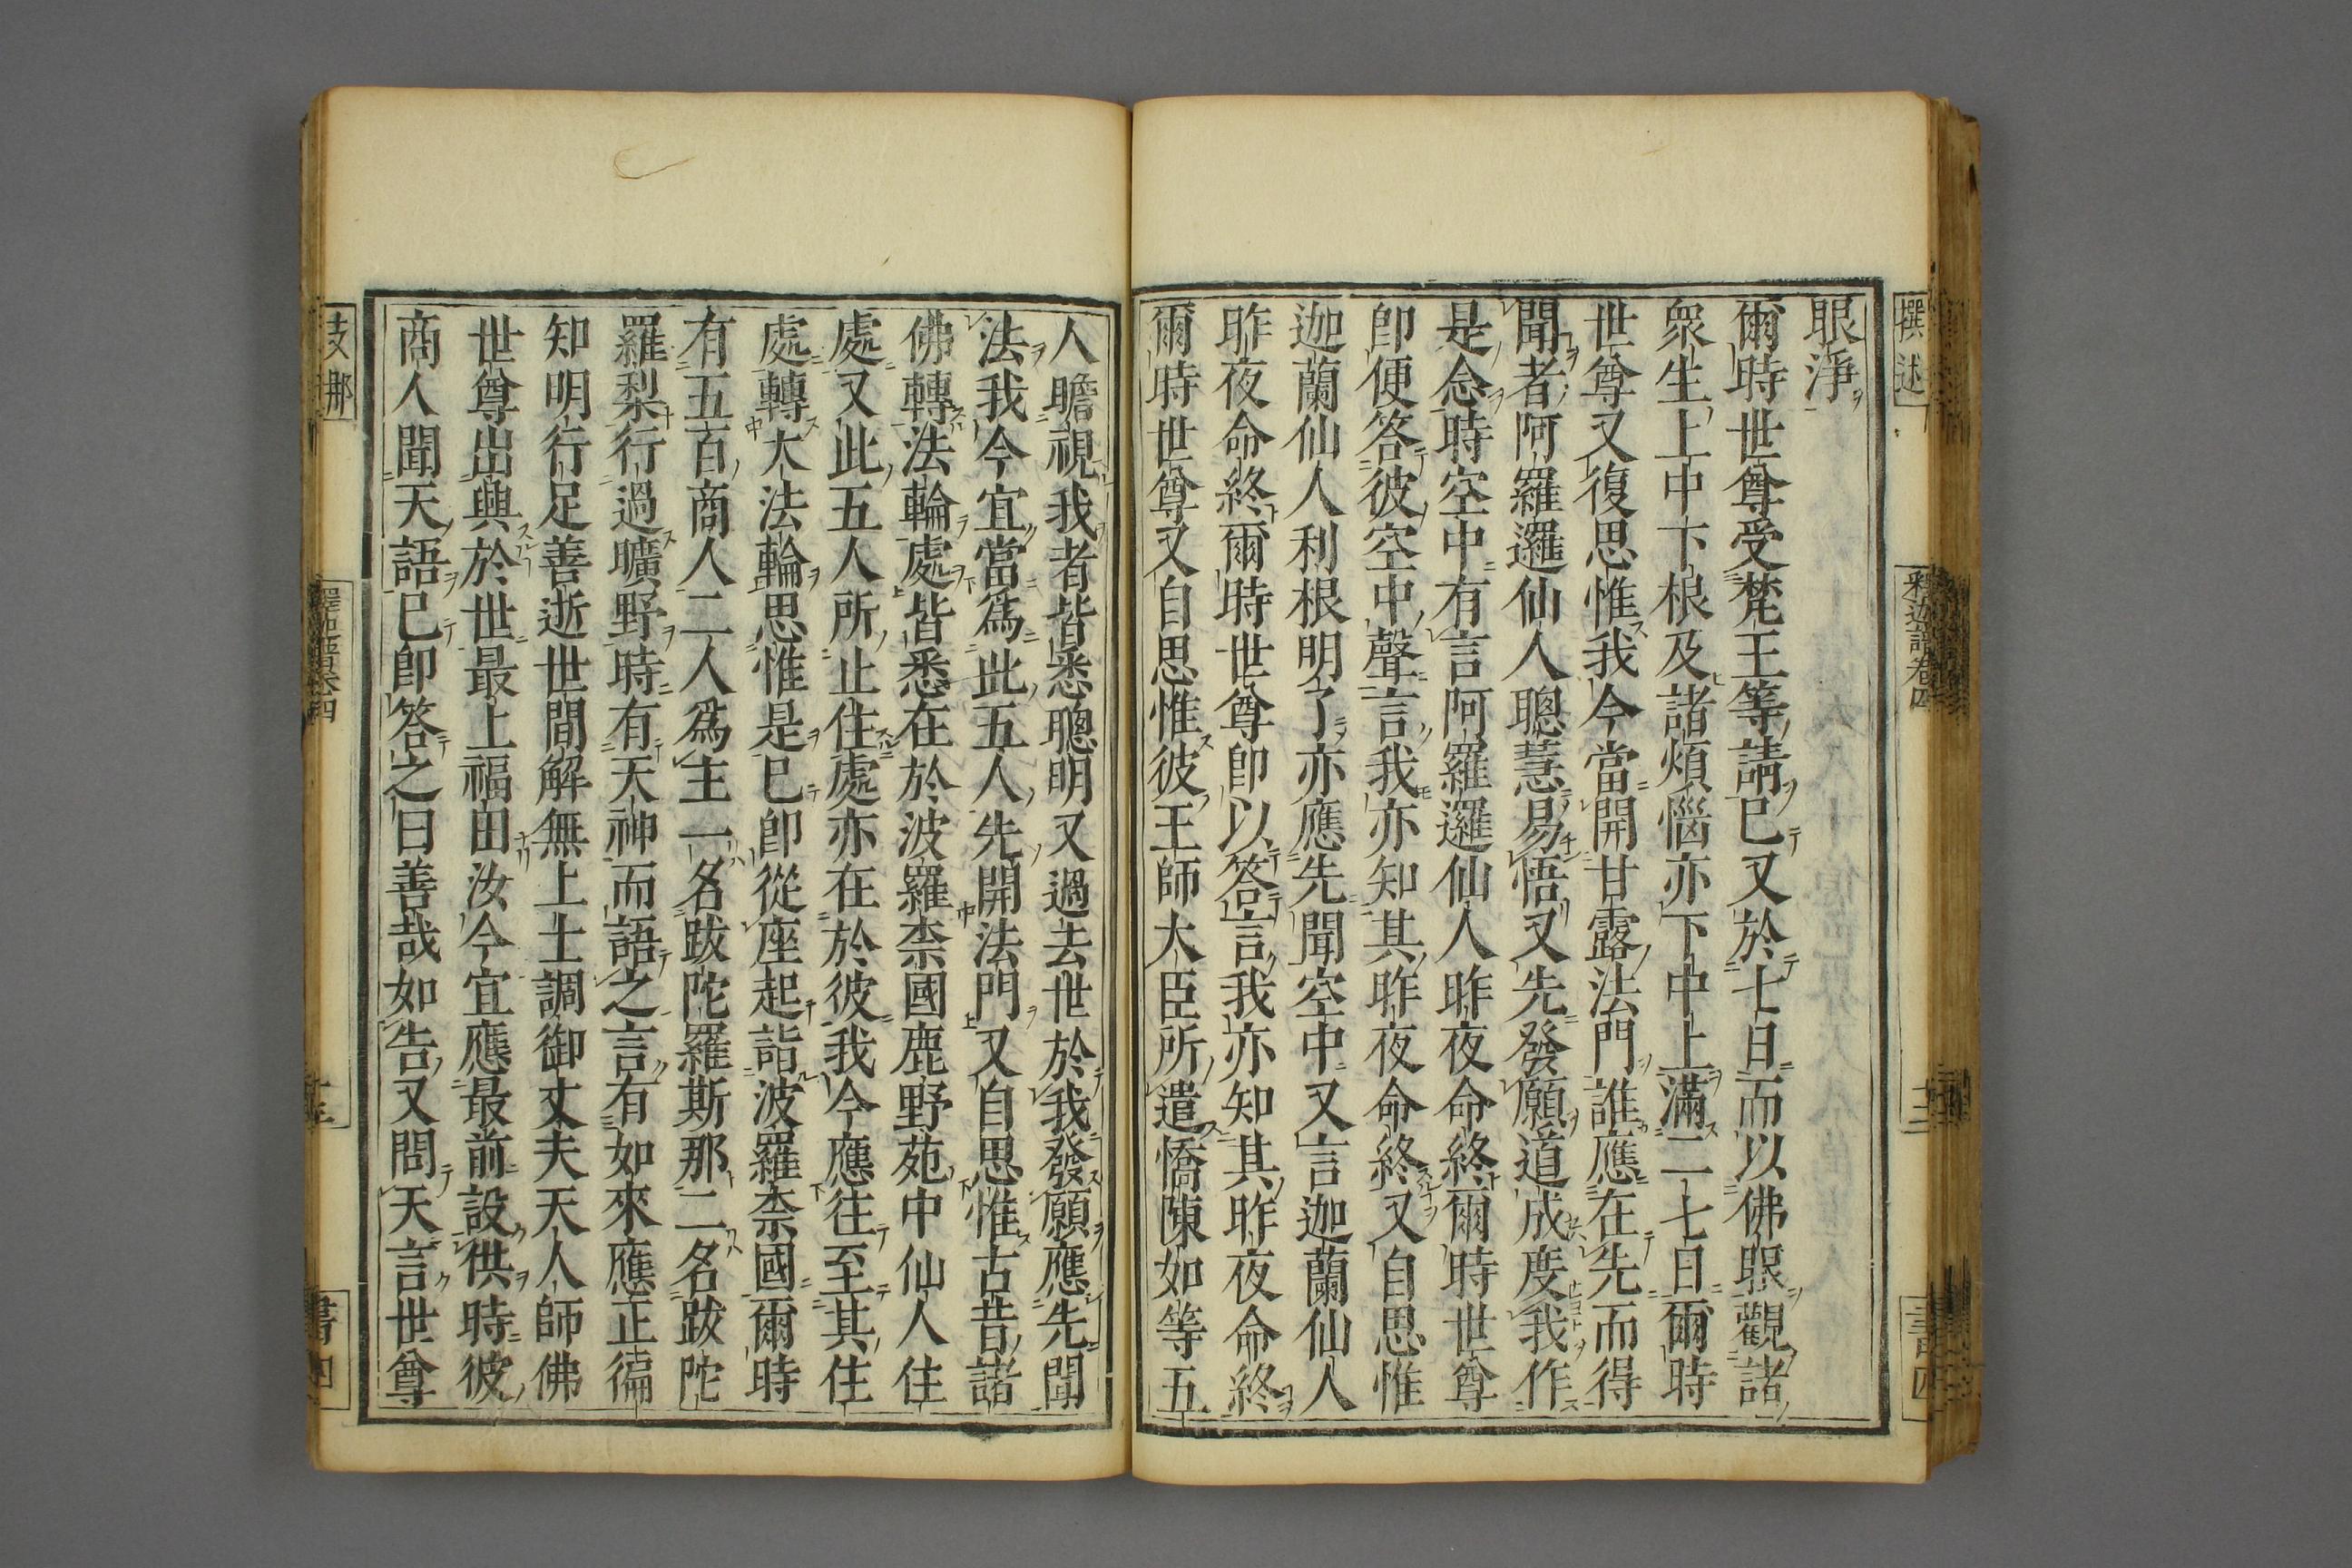 撰述
釋迦譜卷四
十二
書四
眼淨
爾時世尊受梵王等請已又於七日而以佛眼觀諸
衆生上中下根及諸煩惱亦下中上滿二七日爾時
世尊又復思惟我今當開甘露法門誰應在先而得
聞者阿羅邏仙人聰慧易悟又先發願道成度我作
是念時空中有言阿羅邏仙人昨夜命終爾時世尊
卽便答彼空中聲言我亦知其昨夜命終又自思惟
迦蘭仙人利根明了亦應先聞空中又言迦蘭仙人
昨夜命終爾時世尊卽以答言我亦知其昨夜命終
爾時世尊又自思惟彼王師大臣所遣憍陳如等五
人瞻視我者皆悉聰明又過去世於我發願應先聞
法我今宜當爲此五人先開法門又自思惟古昔諸
佛轉法輪處皆悉在於波羅柰國鹿野苑中仙人住
處又此五人所止住處亦在於彼我今應往至其住
處轉大法輪思惟是已卽從座起詣波羅柰國爾時
有五百商人二人爲主一名跋陀羅斯那二名跋陀
羅梨行過曠野時有天神而語之言有如來應正徧
知明行足善逝世間解無上士調御丈夫天人師佛
世尊出興於世最上福田汝今宜應最前設供時彼
商人聞天語已卽答之曰善哉如告又問天言世尊
支那
釋迦譜卷四
書四